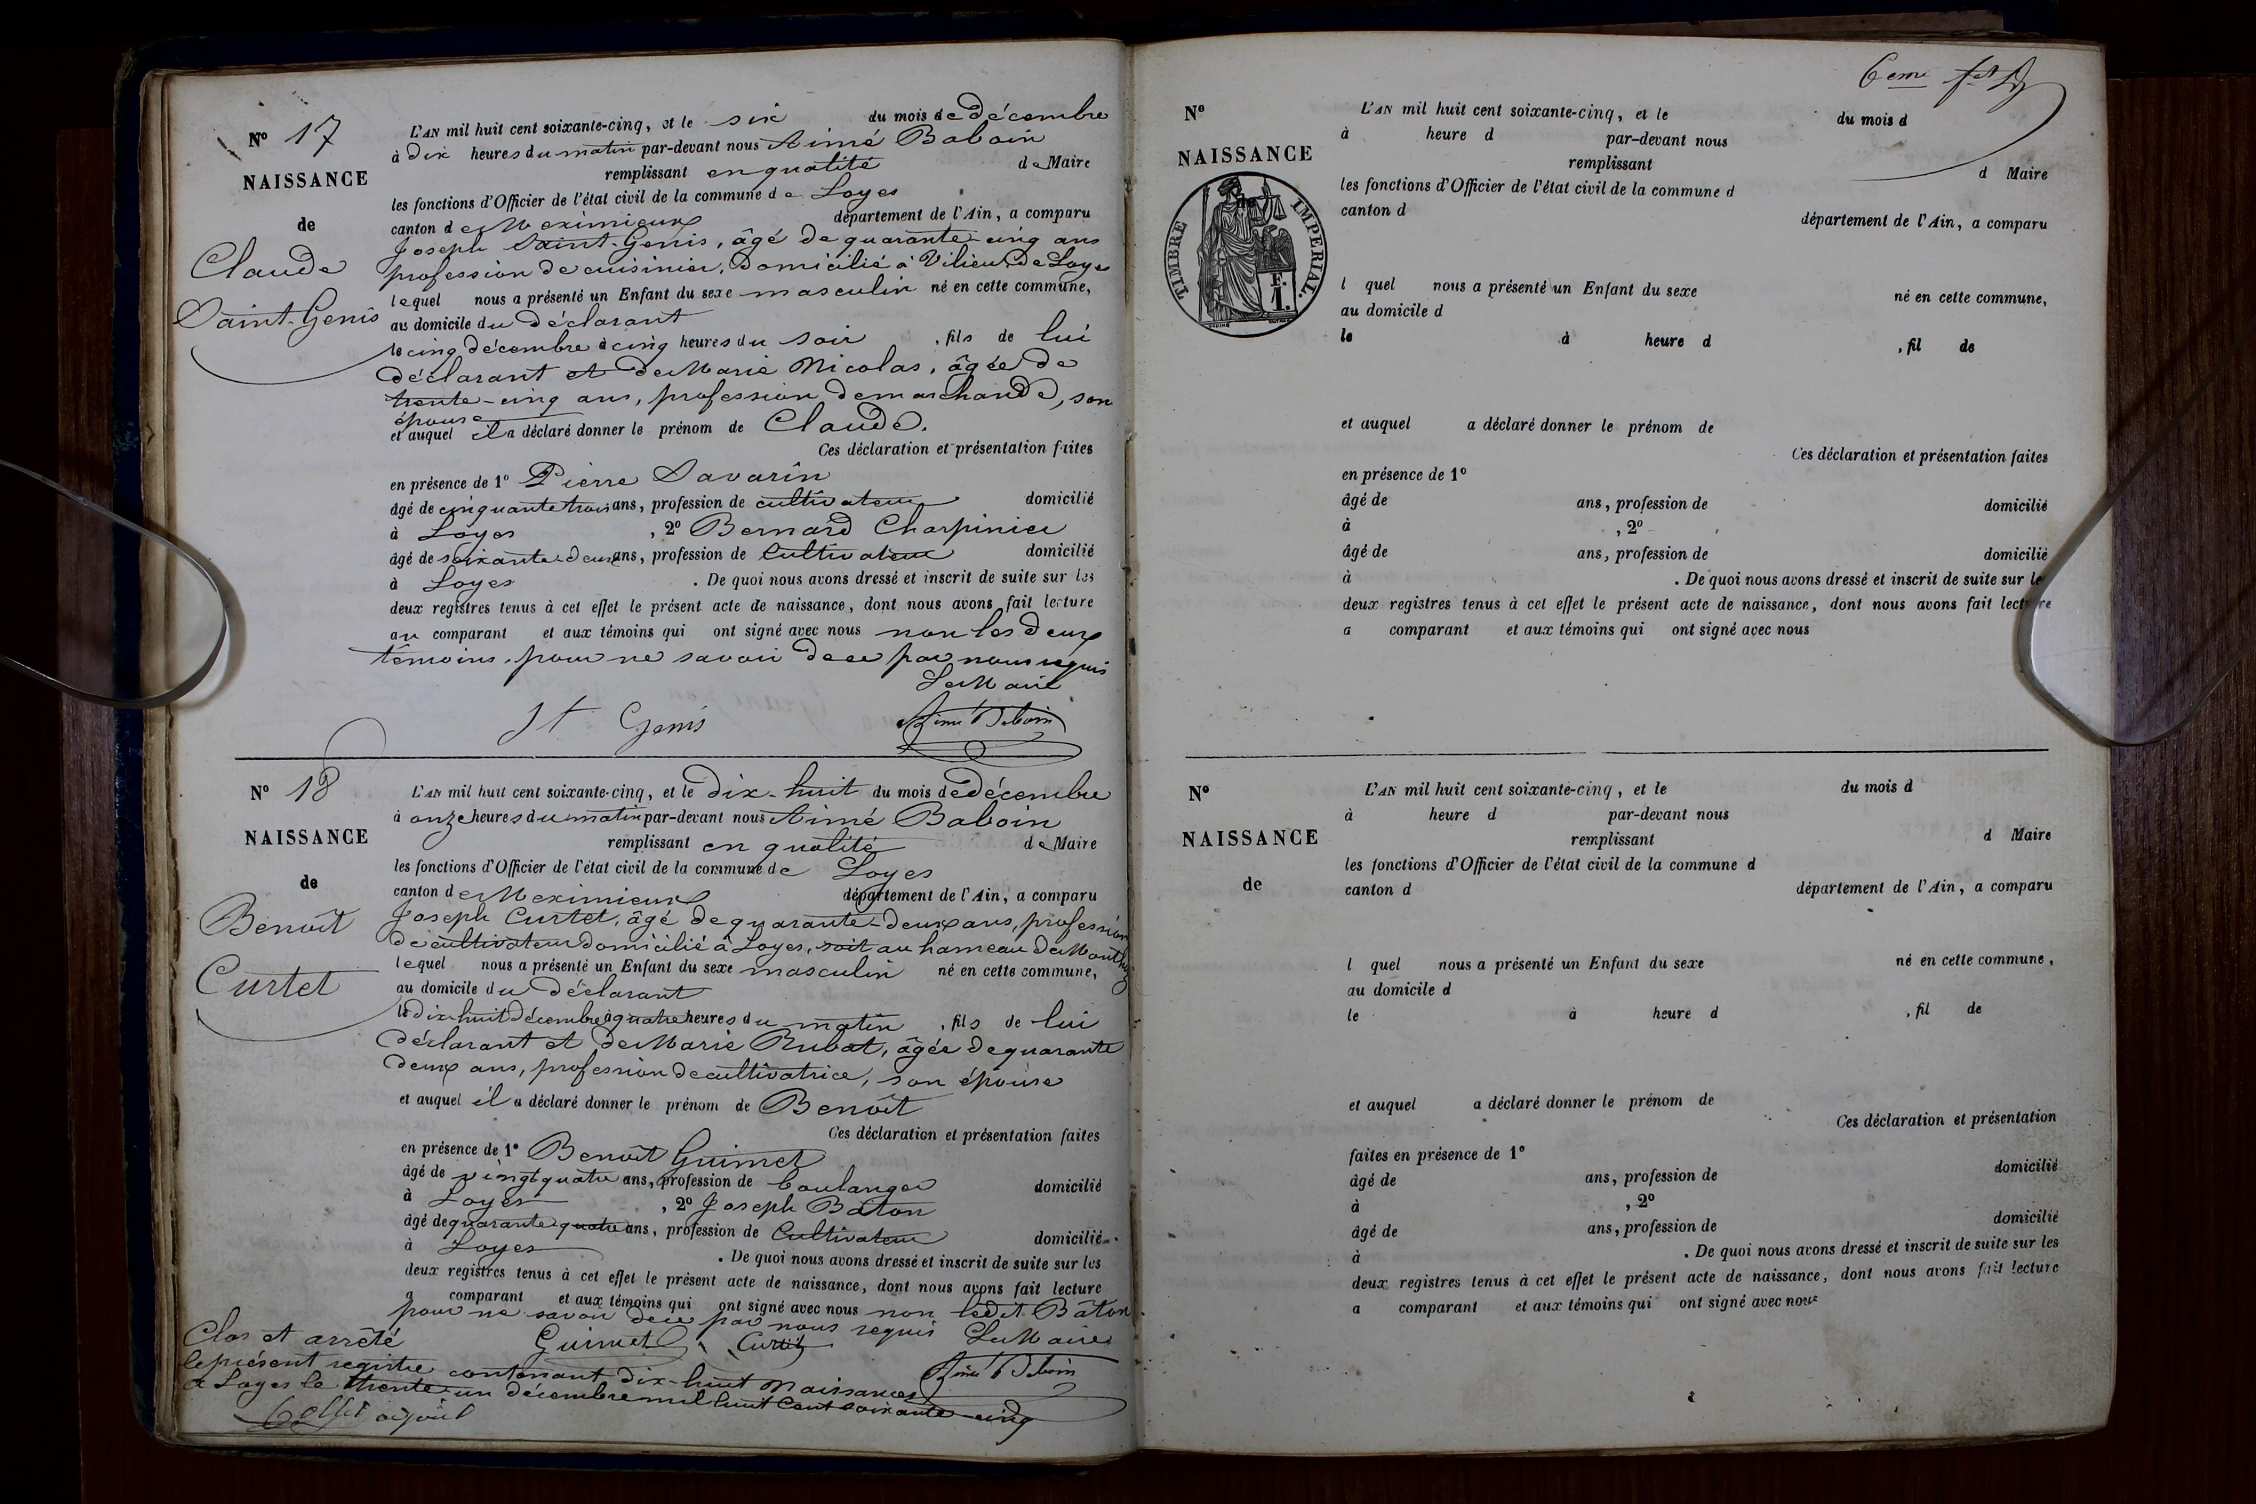 N° 17
NAISSANCE
de
Claude
Saint-Genis
L'AN mil huit cent soixante-cinq, et le six du mois de décembre
à dix heures du matin par-devant nous Aimé Baboin
remplissant en qualité de Maire
les fonctions d'Officier de l'état civil de la commune de Loyes
canton de Meximieux département de l'Ain, a comparu
Joseph Saint-Genis, âgé de quarante-cinq ans
profession de cuisinier, domicilié à Vilieu de Loyes
lequel nous a présenté un Enfant du sexe masculin né en cette commune,
au domicile du déclarant
le cinq décembre à cinq heures du soir, fils de lui
déclarant et de Marie Nicolas, âgée de
trente-cinq ans, profession de marchande, son
épouse
et auquel il a déclaré donner le prénom de Claude.
Ces déclaration et présentation faites
en présence de 1° Pierre Savarin
âgé de cinquante trois ans, profession de cultivateur domicilié
à Loyes, 2° Bernard Charpinier
âgé de soixante-deux ans, profession de Cultivateur domicilié
à Loyes. De quoi nous avons dressé et inscrit de suite sur les
deux registres tenus à cet effet le présent acte de naissance, dont nous avons fait lecture
au comparant et aux témoins qui ont signé avec nous non les deux
témoins, pour ne savoir de ce par nous requis
Le Maire
St Genis Aimé Baboin
N° 18
NAISSANCE
de
Benoît
Curtet
L'AN mil huit cent soixante-cinq, et le dix-huit du mois de décembre
à onze heures du matin par-devant nous Aimé Baboin
remplissant en qualité de Maire
les fonctions d'Officier de l'état civil de la commune de Loyes
canton de Meximieux département de l'Ain, a comparu
Joseph Curtet, âgé de quarante-deux ans, profession
de cultivateur domicilié à Loyes, soit au hameau de
lequel nous a présenté un Enfant du sexe masculin né en cette commune,
au domicile du déclarant
le dix huit décembre à quatre heures du matin, fils de lui
déclarant et de Marie Rubat, âgée de quarante
deux ans, profession de cultivatrice, son épouse
et auquel il a déclaré donner le prénom de Benoît
Ces déclaration et présentation faites
en présence de 1° Benoît Guimet
âgé de vingt quatre ans, profession de boulanger domicilié
à Loyes, 2° Joseph Bâton
âgé de quarante quatre ans, profession de Cultivateur domicilié
à Loyes. De quoi nous avons dressé et inscrit de suite sur les
deux registres tenus à cet effet le présent acte de naissance, dont nous avons fait lecture
a comparant et aux témoins qui ont signé avec nous non ledit Bâton
pour ne savoir de ce par nous requis Le Maire
Guimet Curtet Aimé Baboin
Clos et arrêté
le présent registre contenant dix-huit Naissances
à Loyes le trente-un décembre mil huit cent soixante-cinq
adjoint
6eme
N°
NAISSANCE
TIMBRE IMPERIAL.
L'AN mil huit cent soixante-cinq, et le du mois d
à heure d par-devant nous
remplissant d Maire
les fonctions d'Officier de l'état civil de la commune d
canton d département de l'Ain, a comparu
l quel nous a présenté un Enfant du sexe né en cette commune,
au domicile d
le à heure d, fil de
et auquel a déclaré donner le prénom de
Ces déclaration et présentation faites
en présence de 1°
âgé de ans, profession de domicilié
à, 2°
âgé de ans, profession de domicilié
à. De quoi nous avons dressé et inscrit de suite sur le
deux registres tenus à cet effet le présent acte de naissance, dont nous avons fait lecture
a comparant et aux témoins qui ont signé avec nous
N°
NAISSANCE
de
L'AN mil huit cent soixante-cinq, et le du mois d
à heure d par-devant nous
remplissant d Maire
les fonctions d'Officier de l'état civil de la commune d
canton d département de l'Ain, a comparu
l quel nous a présenté un Enfant du sexe né en cette commune,
au domicile d
le à heure d, fil de
et auquel a déclaré donner le prénom de
Ces déclaration et présentation
faites en présence de 1°
âgé de ans, profession de domicilié
à, 2°
âgé de ans, profession de domicilié
à. De quoi nous avons dressé et inscrit de suite sur les
deux registres tenus à cet effet le présent acte de naissance, dont nous avons fait lecture
a comparant et aux témoins qui ont signé avec nous